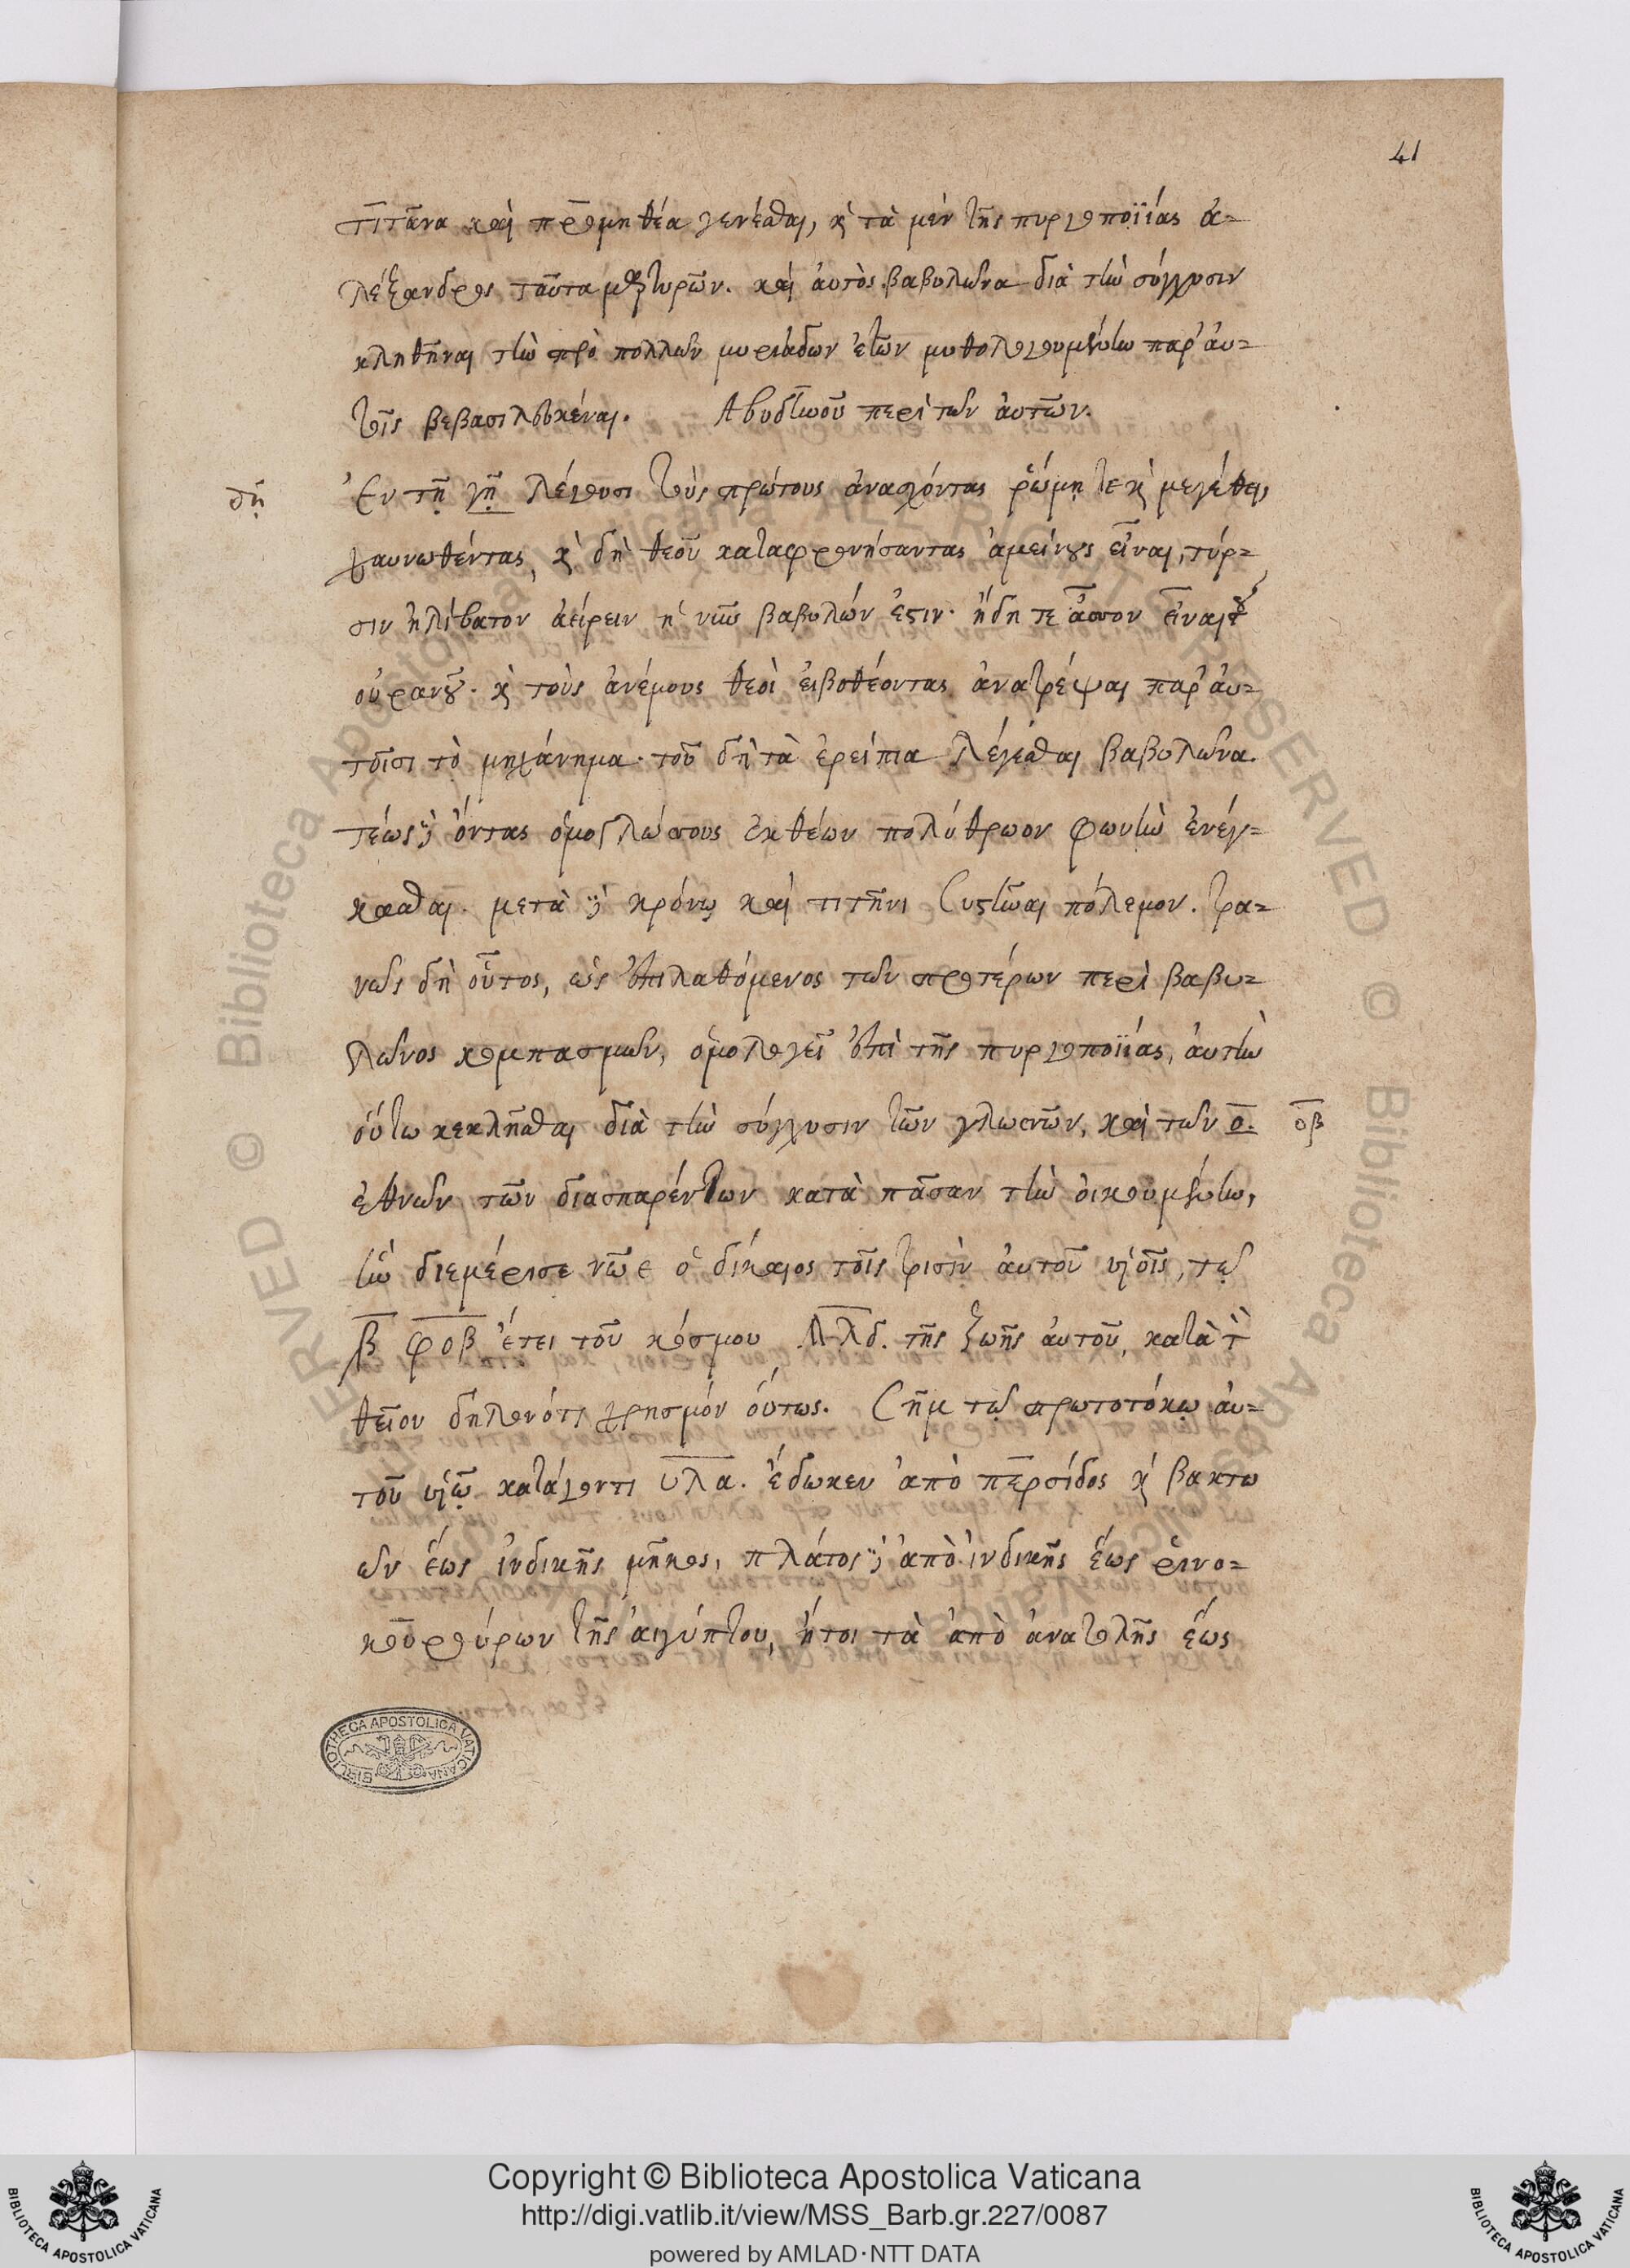 41
τιτᾶνα καὶ προμηθέα γενέσθαι, κ̀ τὰ μὲν τῆς πυργοποιΐας ἀ-
λέξανδρος ταῦτα μαρτυρῶν. καὶ αὐτὸς βαβυλῶνα διὰ τὴν σύγχυσιν
κληθῆναι τὴν πρὸ πολλῶν μυριάδων ἐτῶν μυθολογουμένην παρ' αὐ-
τοῖς βεβασιλευκέναι. Ἀβυδηνοῦ περὶ τῶν αὐτῶν.
δὴ Ἐν τῇ γῇ λέγουσι τοὺς πρώτους ἀνασχόντας ῥώμῃ τε κ̀ μεγέθει,
χαυνωθέντας, κ̀ δὴ θεοῦ καταφρονήσαντας ἀμείνους εἶναι, τύρ-
σιν ἠλίβατον ἀείρειν ἡ νῦν βαβυλών ἐστιν. ἤδη τε ἆσσον εἶναι τοῦ
οὐρανοῦ. κ̀ τοὺς ἀνέμους θεοὶ εἰβοθέοντας ἀνατρέψαι παρ' αὐ-
τοῖσι τὸ μηχάνημα. τοῦ δὴ τὰ ἐρείπια λέγεσθαι βαβυλῶνα.
τέως δὲ ὄντας ὁμογλώσσους ἐκ θεῶν πολύθρωον φωνὴν ἐνέγ-
κασθαι. μετὰ δὲ κρόνῳ καὶ τιτῆνι συστῆναι πόλεμον. τρα-
νῶς δὴ οὗτος, ὡς ἐπιλαθόμενος τῶν προτέρων περὶ βαβυ-
λῶνος κομπασμῶν, ὁμολογεῖ ἐπὶ τῆς πυργοποιΐας, αὐτὴν
οὕτω κεκλῆσθαι διὰ τὴν σύγχυσιν τῶν γλωσσῶν, καὶ τῶν ο. οβ
ἐθνῶν τῶν διασπαρέντων κατὰ πᾶσαν τὴν οἰκουμένην,
ἣν διεμέρισε νῶε ὁ δίκαιος τοῖς τρισὶν αὐτοῦ υἱοῖς, τῷ
β φοβ ἔτει τοῦ κόσμου λδ. τῆς ζωῆς αὐτοῦ, κατὰ τὸν
θεῖον δηλονότι χρησμόν οὕτως. Σῆμ τῷ πρωτοτόκῳ αὐ-
τοῦ υἱῷ κατάγοντι υλα. ἔδωκεν ἀπὸ περσίδος κ̀ βακτω
ῶν ἕως ἰνδικῆς μῆκος, πλάτος δὲ ἀπὸ ἰνδικῆς ἕως ῥινο-
κουρούρων τῆς αἰγύπτου, ἤτοι τὰ ἀπὸ ἀνατολῆς ἕως
BIBLIOTHECA APOSTOLICA VATICANA
Copyright © Biblioteca Apostolica Vaticana
http://digi.vatlib.it/view/MSS_Barb.gr.227/0087
powered by AMLAD·NTT DATA